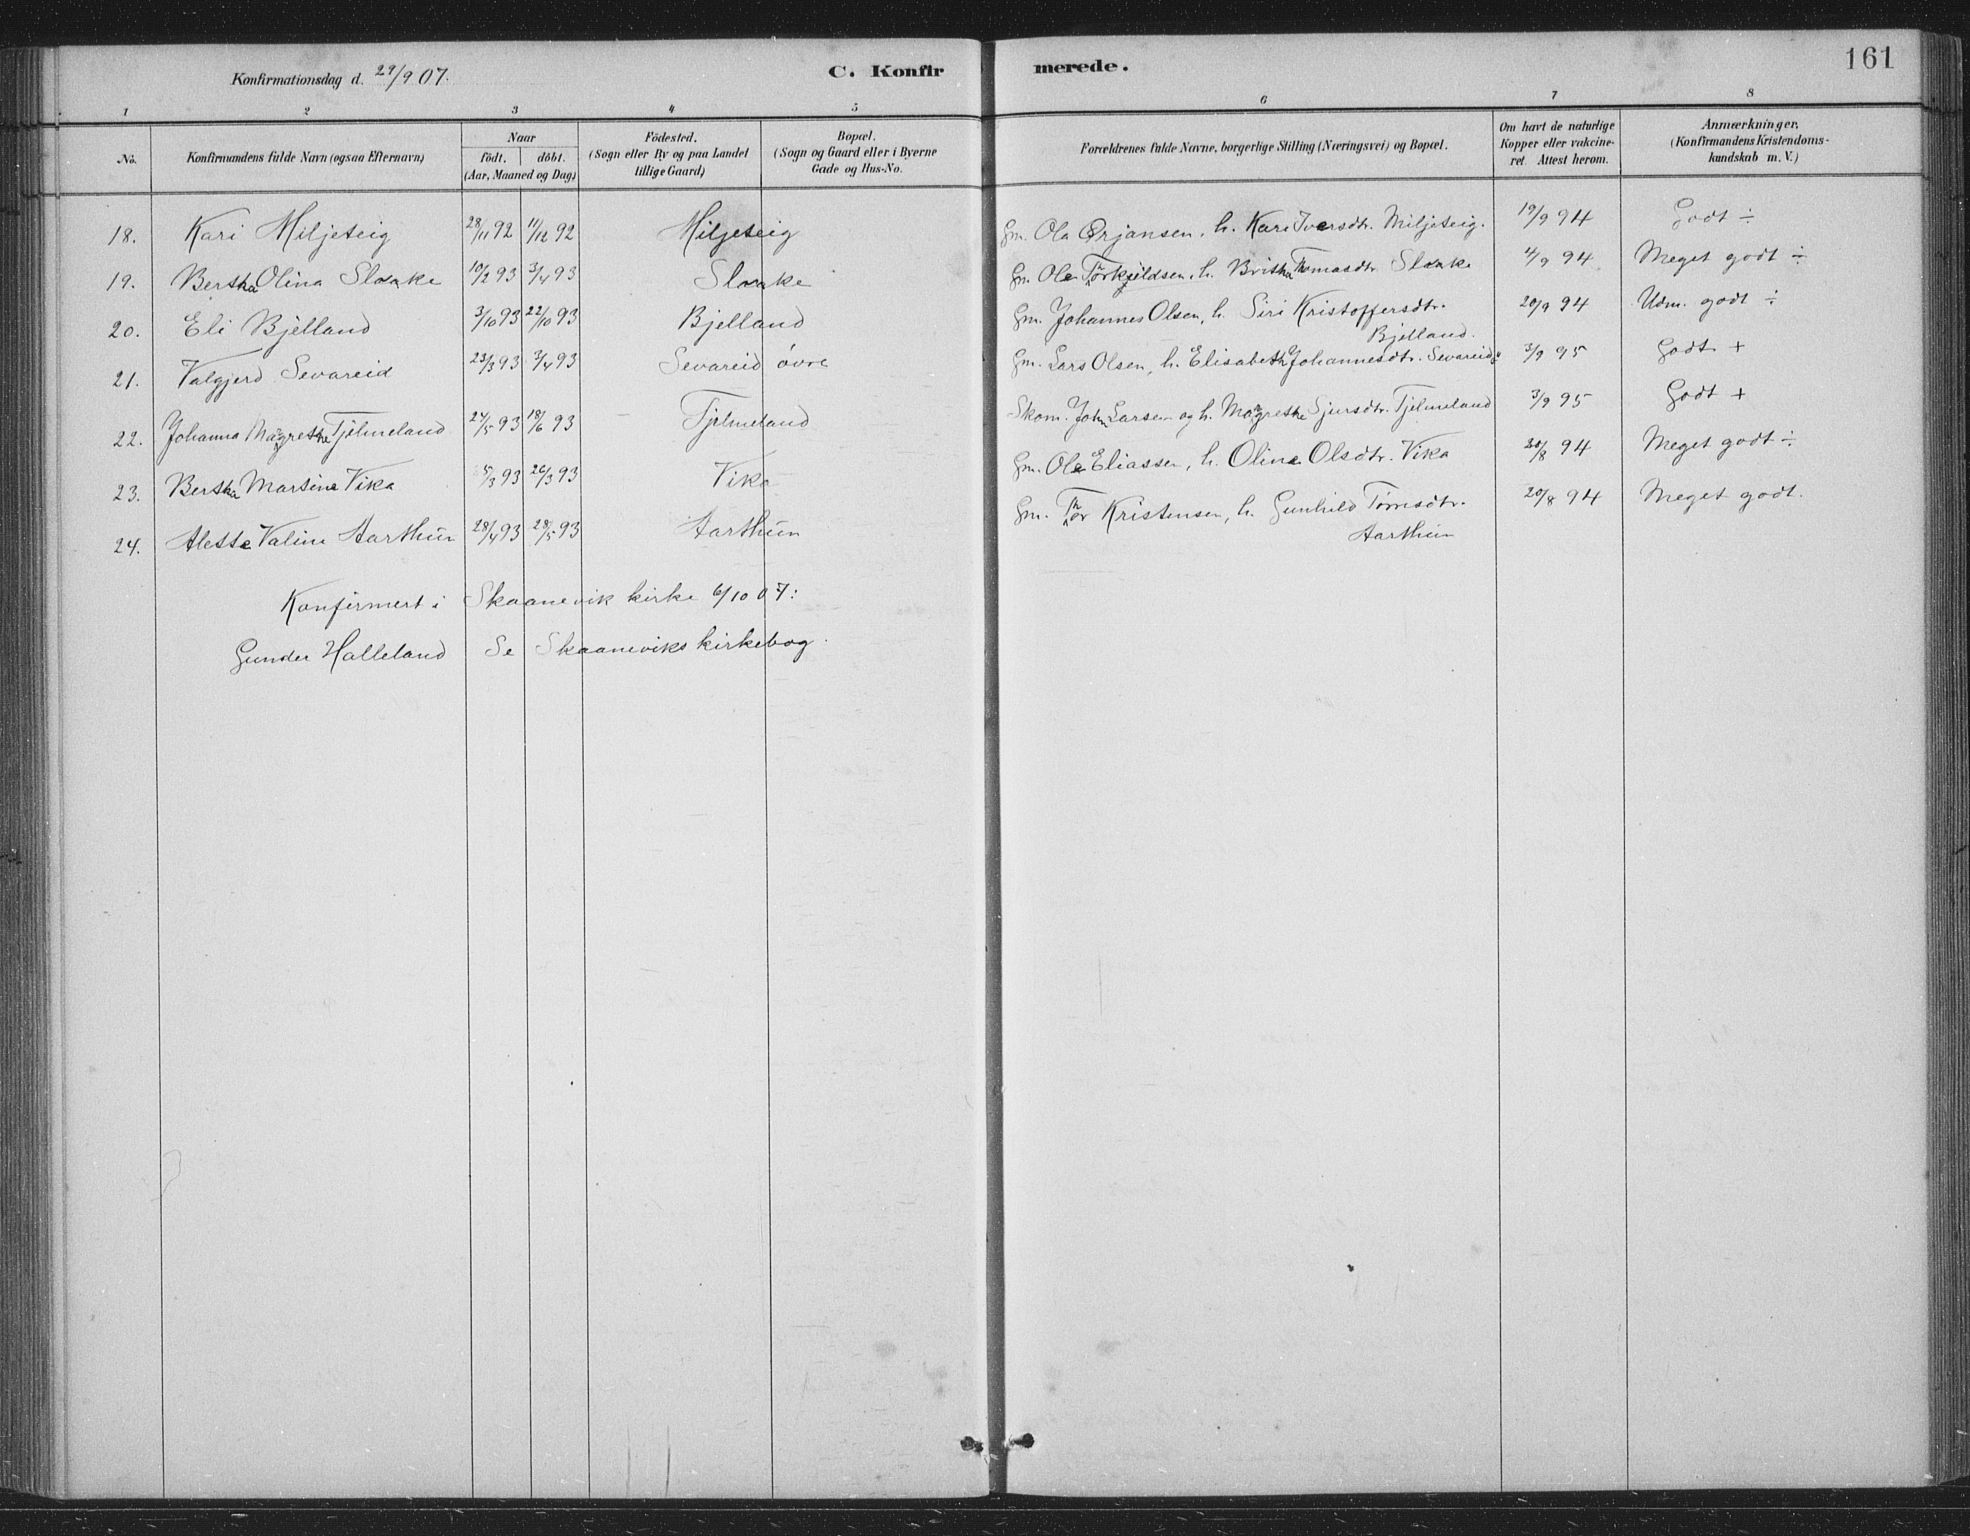 161
Konfirmationsdag d. 29/9 07. C. Konfirmerede.
1 2 3 4 5 6 7 8
No. Konfirmandens fulde Navn (ogsaa Efternavn) Naar födt. döbt. (Aar, Maaned og Dag) Födested. (Sogn eller By og paa Landet tillige Gaard) Bopæl. (Sogn og Gaard eller i Byerne Gade og Hus-No. Forældrenes fulde Navne, borgerlige Stilling (Næringsvei) og Bopæl. Om havt de naturlige Kopper eller vakcineret. Attest herom. Anmærkninger. (Konfirmandens Kristendomskundskab m. V.)
18. Kari Miljeteig 28/11 92 11/12 92 Miljeteig Gm. Ola Ørjansen, h. Kari Iversdtr. Miljeteig. 19/9 94 Godt ÷
19. Bertha Olina Slaake 10/2 93 3/4 93 Slaake Gm. Ole Torkjeldsen, h. Britha Thomasdtr. Slaake 4/9 94 Meget godt ÷
20. Eli Bjelland 3/10 93 22/10 93 Bjelland Gm. Johannes Olsen, h. Siri Kristoffersdtr. Bjelland. 20/9 94 Udm. godt ÷
21. Valgjerd Sevareid 23/3 93 3/4 93 Sevareid övre Gm. Lars Olsen, h. Elisabeth Johannesdtr. Sevareid 3/9 95 Godt +
22. Johanna Magrethe Tjelmeland 27/5 93 18/6 93 Tjelmeland Skom. John Larsen og h. Magrethe Sjursdtr. Tjelmeland 3/9 95 Godt +
23. Bertha Martine Vika 5/3 93 26/3 93 Vika Gm. Ole Eliassen, h. Oline Olsdtr. Vika 20/8 94 Meget godt ÷
24. Alette Valine Aarthun 28/4 93 28/5 93 Aarthun Gm. Thor Kristensen, h. Gunhild Tørresdtr. Aarthun 20/8 94 Meget godt.
Konfirmert i Skaanevik kirke 6/10 07:
Gunder Halleland Se Skaaneviks kirkebog.